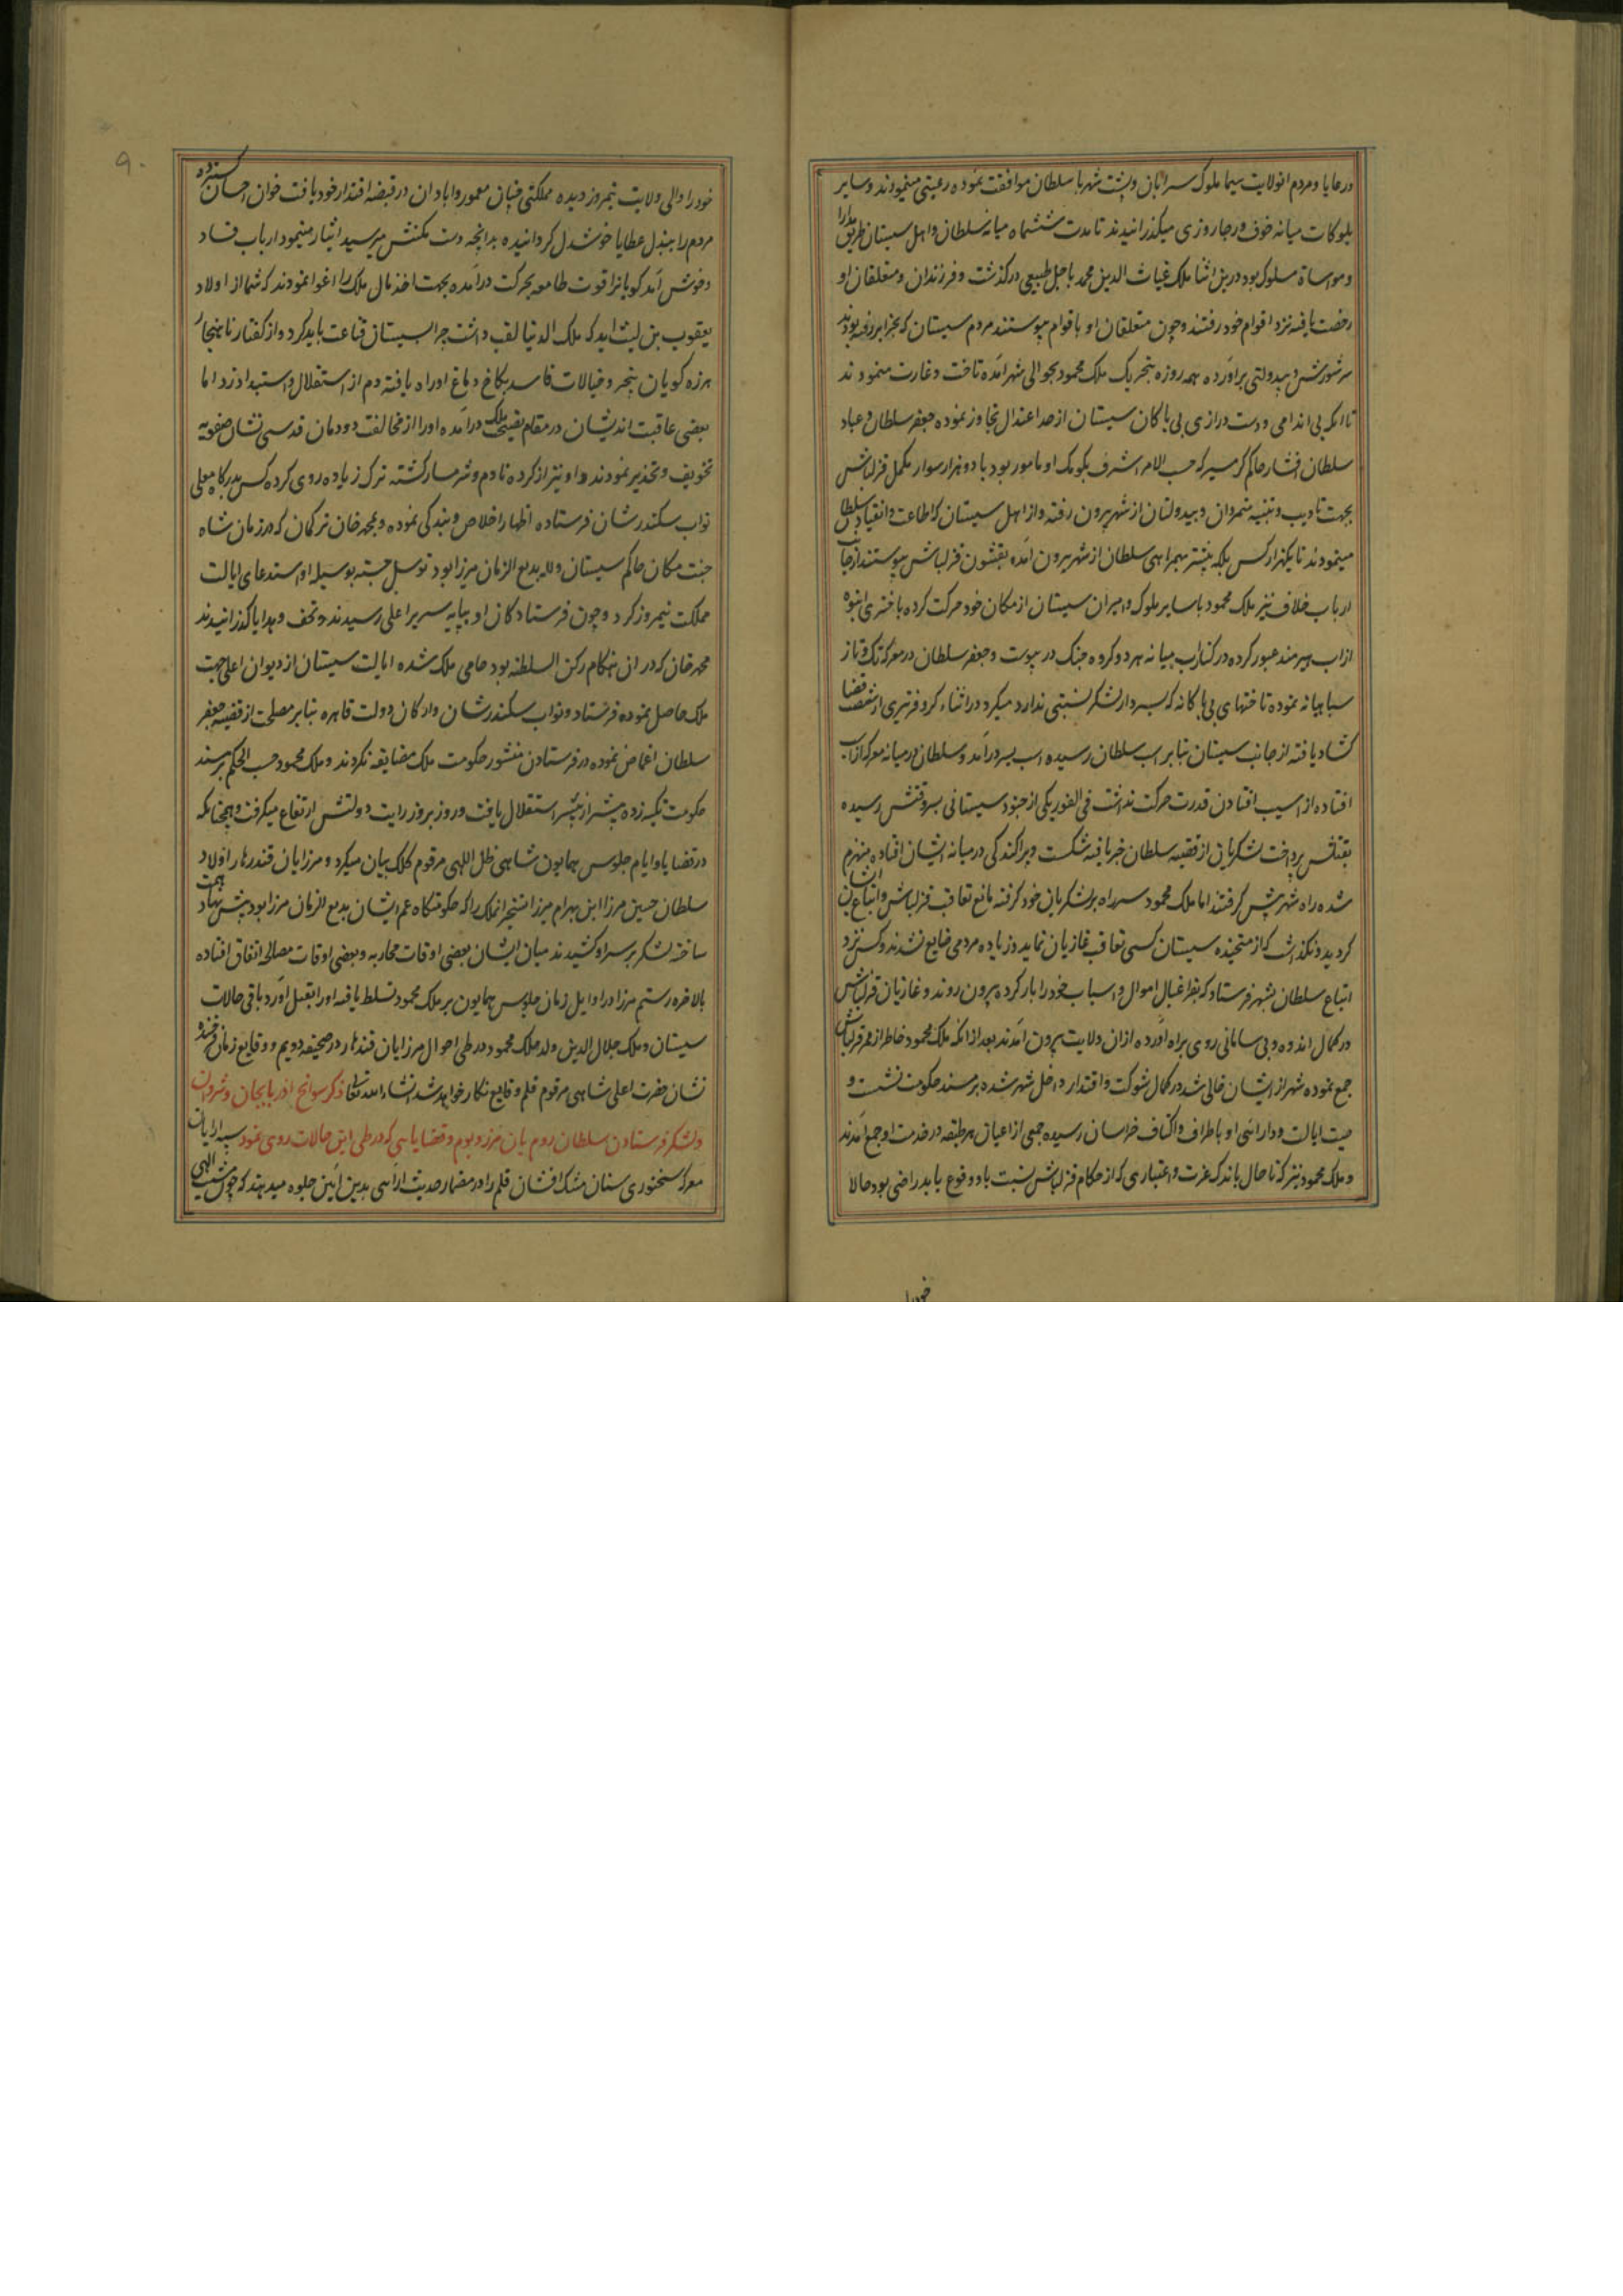 و رعایا و مردم انولایت سیما ملوک سرابان و پشت شهر با سلطان موافقت نموده رعیتی مینمودند و سایر
بلوکات میانه خوف و رجا روزی میگذرانیدند تا مدت ششماه میانه سلطان و اهل سیستان طریق مدارا
و مواساة مسلوک بود درین اثنا ملک غیاث الدین محمد باجل طبیعی درگذشت و فرزندان و متعلقان او
رخصت یافته نزد اقوام خود رفتند و چون متعلقان او باقوام پیوستند مردم سیستان که
سر شورش و بیدولتی برآورده همه روزه بتحریک ملک محمود بحوالی شهر آمده تاخت و غارت مینمودند
تا انکه بی اندامی و دست درازی بی باکان سیستان از حد اعتدال تجاوز نموده جعفر سلطان و عباد
سلطان افشار حاکم کرمسیر که حسب الامر اشرف بکومک او مامور بود با دو هزار سوار مکمل قزلباش
بجهت تادیب و تنبیه متمردان و بیدولتان از شهر بیرون رفته و از اهل سیستان که اطاعت و انقیاد سلطان
مینمودند تا یکهزار کس بلکه بیشتر بهمراهی سلطان از شهر بیرون آمده بقشون قزلباش پیوستند از جانب
ارباب خلاف نیز ملک محمود با سایر ملوک و امیران سیستان از مکان خود حرکت کرده با حشری انبوه
از اب هیرمند عبور کرده در کنار آب میانه هر دو گروه جنک در پیوست و جعفر سلطان در معرکه تک و تاز
سپاهیانه نموده تاختهای بی باکانه که بسردار لشکر نسبتی ندارد میکرد در اثناء کر و فر تیری از شست قضا
کشاد یافته از جانب سیستان بنابر اسب سلطان رسیده اسب بسر درآمد و سلطان در میانه معرکه از اسب
افتاده از اسیب افتادن قدرت حرکت نداشت فی الفور یکی از جنود سیستانی بسر وقتش رسیده
بقتلش پرداخت لشکریان از قضیه سلطان خبر یافته شکست و پراکندگی در میانه ایشان افتاده منهزم
شده راه شهر پیش گرفتند اما ملک محمود سر راه بر لشکریان خود گرفته مانع تعاقب قزلباش و اتباع ایشان
گردید و نگذاشت که از متجنده سیستان کسی تعاقب غازیان نماید و زیاده مردمی ضایع نشدند و کس نزد
اتباع سلطان بشهر فرستاد که بفراغبال اموال و اسباب خود را بار کرده بیرون روند و غازیان قزلباش
در کمال اندوه و بی سامانی روی براه آورده از ان ولایت بیرون آمدند بعد از انکه ملک محمود خاطر از ممر قزلباش
جمع نموده شهر از ایشان خالی شد در کمال شوکت و اقتدار داخل شهر شده بر مسند حکومت نشست و
صیت ایالت و دارائی او باطراف و اکناف خراسان رسیده جمعی از اعیان هر طبقه در خدمت او جمع آمدند
و ملک محمود نیز که تا حال باندک عزت و اعتباری که از حکام قزلباش نسبت باو وقوع یابد راضی بود حالا
خود را
۹۰
خود را والی ولایت نیمروز دیده مملکتی چنان معمور و ابادان در قبضه اقتدار خود یافت خوان احسان کسترده
مردم را ببذل عطایا خوشدل گردانیده بدانچه دست مکنتش میرسید ایثار مینمود ارباب فساد
و خوش آمد گویانرا قوت طامعه بحرکت درآمده بجهت اخذ مال ملک را اغوا نمودند که شما از اولاد
یعقوب بن لیث اید که ملک الدنیا لقب داشت چرا بسیستان قناعت باید کرد و از گفتار ناهنجار
هرزه گویان پنجر و خیالات فاسد بکاخ دماغ او راه یافته دم از استقلال و استبداد زد اما
بعضی عاقبت اندیشان در مقام نصیحت ملک درآمده او را از مخالفت دودمان قدسی نشان صفویه
تخویف و تحذیر نمودند و او نیز از کرده نادم و شرمسار گشته ترک زیاده روی کرده کس بدرگاه معلی
نواب سکندر شان فرستاده اظهار اخلاص و بندگی نموده و بمحمد خان ترکمان که در زمان شاه
جنت مکان حاکم سیستان و لله بدیع الزمان میرزا بود توسل جسته بوسیله او استدعای ایالت
مملکت نیمروز کرد و چون فرستادگان او بپایه سریر اعلی رسیدند و تحف و هدایا گذرانیدند
محمد خان که در ان هنگام رکن السلطنه بود حامی ملک شده ایالت سیستان از دیوان اعلی جهت
ملک حاصل نموده فرستاد و نواب سکندر شان و ارکان دولت قاهره بنابر مصلحت از قضیه جعفر
سلطان اغماض نموده در فرستادن منشور حکومت ملک مضایقه نکردند و ملک محمود حسب الحکم بر مسند
حکومت تکیه زده بیشتر از پیشتر استقلال یافت و روز بروز رایت دولتش ارتفاع میگرفت و همچنانکه
در قضایا و ایام جلوس همایون شاهی ظل اللهی مرقوم کلک بیان میکرد و مرزایان قندهار اولاد
سلطان حسین مرزا ابن بهرام میرزا تسخیر انملک را که حکومتگاه عم ایشان بدیع الزمان مرزا بود پیش نهاد همت
ساخته لشکر بر سر او کشیدند میان ایشان بعضی اوقات محاربه و بعضی اوقات مصالحه اتفاق افتاده
بالاخره رستم مرزا در اوایل زمان جلوس همایون بر ملک محمود تسلط یافته او را بقتل آورد باقی حالات
سیستان و ملک جلال الدین ولد ملک محمود در طی احوال مرزایان قندهار در صحیفه دویم و وقایع زمان فرخنده
نشان حضرت اعلی شاهی مرقوم قلم وقایع نگار خواهد شد انشاء الله تعالی ذکر سوانح اذربایجان و شروان
و لشکر فرستادن سلطان روم بان مرز و بوم و قضایایی که در طی این حالات روی نمود سپه ارایان
معرکه سخنوری سنان مشک افشان قلم را در مضمار حدیث ارائی بدین آئین جلوه میدهند که چون مشیت الهی